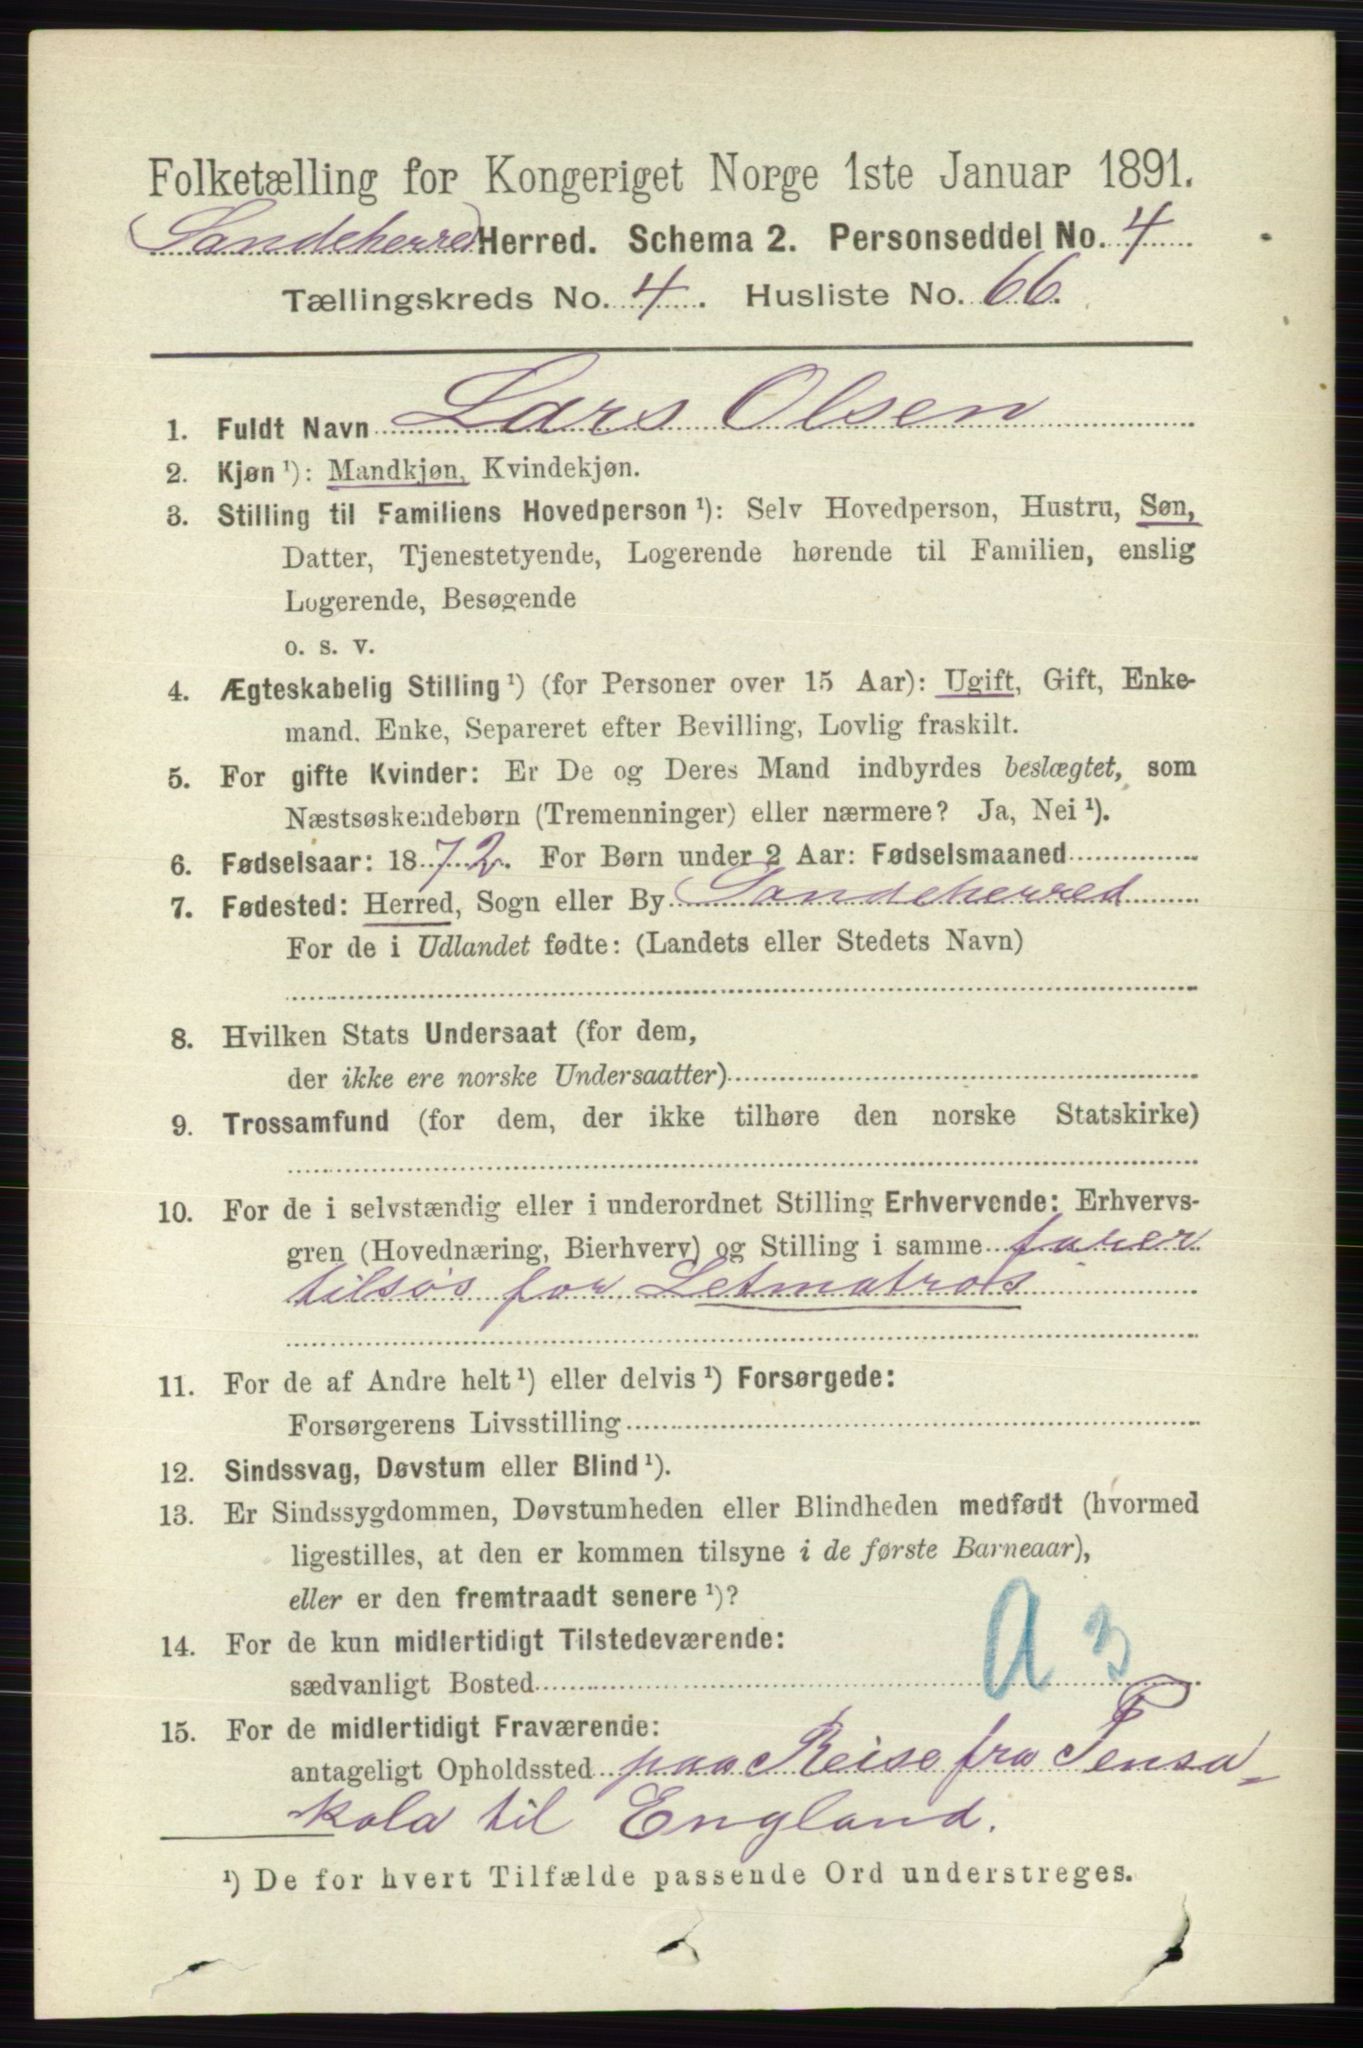 Folketælling for Kongeriget Norge 1ste Januar 1891.
Sandeherred Herred. Schema 2. Personseddel No. 4
Tællingskreds No. 4. Husliste No. 66.
1. Fuldt Navn Lars Olsen
2. Kjøn ¹): Mandkjøn, Kvindekjøn.
3. Stilling til Familiens Hovedperson ¹): Selv Hovedperson, Hustru, Søn,
Datter, Tjenestetyende, Logerende hørende til Familien, enslig
Logerende, Besøgende
o. s. v.
4. Ægteskabelig Stilling ¹) (for Personer over 15 Aar): Ugift, Gift, Enke-
mand. Enke, Separeret efter Bevilling, Lovlig fraskilt.
5. For gifte Kvinder: Er De og Deres Mand indbyrdes beslægtet, som
Næstsøskendebørn (Tremenninger) eller nærmere? Ja, Nei ¹).
6. Fødselsaar: 1872. For Børn under 2 Aar: Fødselsmaaned
7. Fødested: Herred, Sogn eller By Sandeherred
For de i Udlandet fødte: (Landets eller Stedets Navn)
8. Hvilken Stats Undersaat (for dem,
der ikke ere norske Undersaatter)
9. Trossamfund (for dem, der ikke tilhøre den norske Statskirke)
10. For de i selvstændig eller i underordnet Stilling Erhvervende: Erhvervs-
gren (Hovednæring, Bierhverv) og Stilling i samme farer
tilsøs for Letmatros
11. For de af Andre helt ¹) eller delvis ¹) Forsørgede:
Forsørgerens Livsstilling
12. Sindssvag, Døvstum eller Blind ¹).
13. Er Sindssygdommen, Døvstumheden eller Blindheden medfødt (hvormed
ligestilles, at den er kommen tilsyne i de første Barneaar),
eller er den fremtraadt senere ¹)?
14. For de kun midlertidigt Tilstedeværende:
sædvanligt Bosted
A 3
15. For de midlertidigt Fraværende:
antageligt Opholdssted paa Reise fra Pensa-
kola til England.
¹) De for hvert Tilfælde passende Ord understreges.